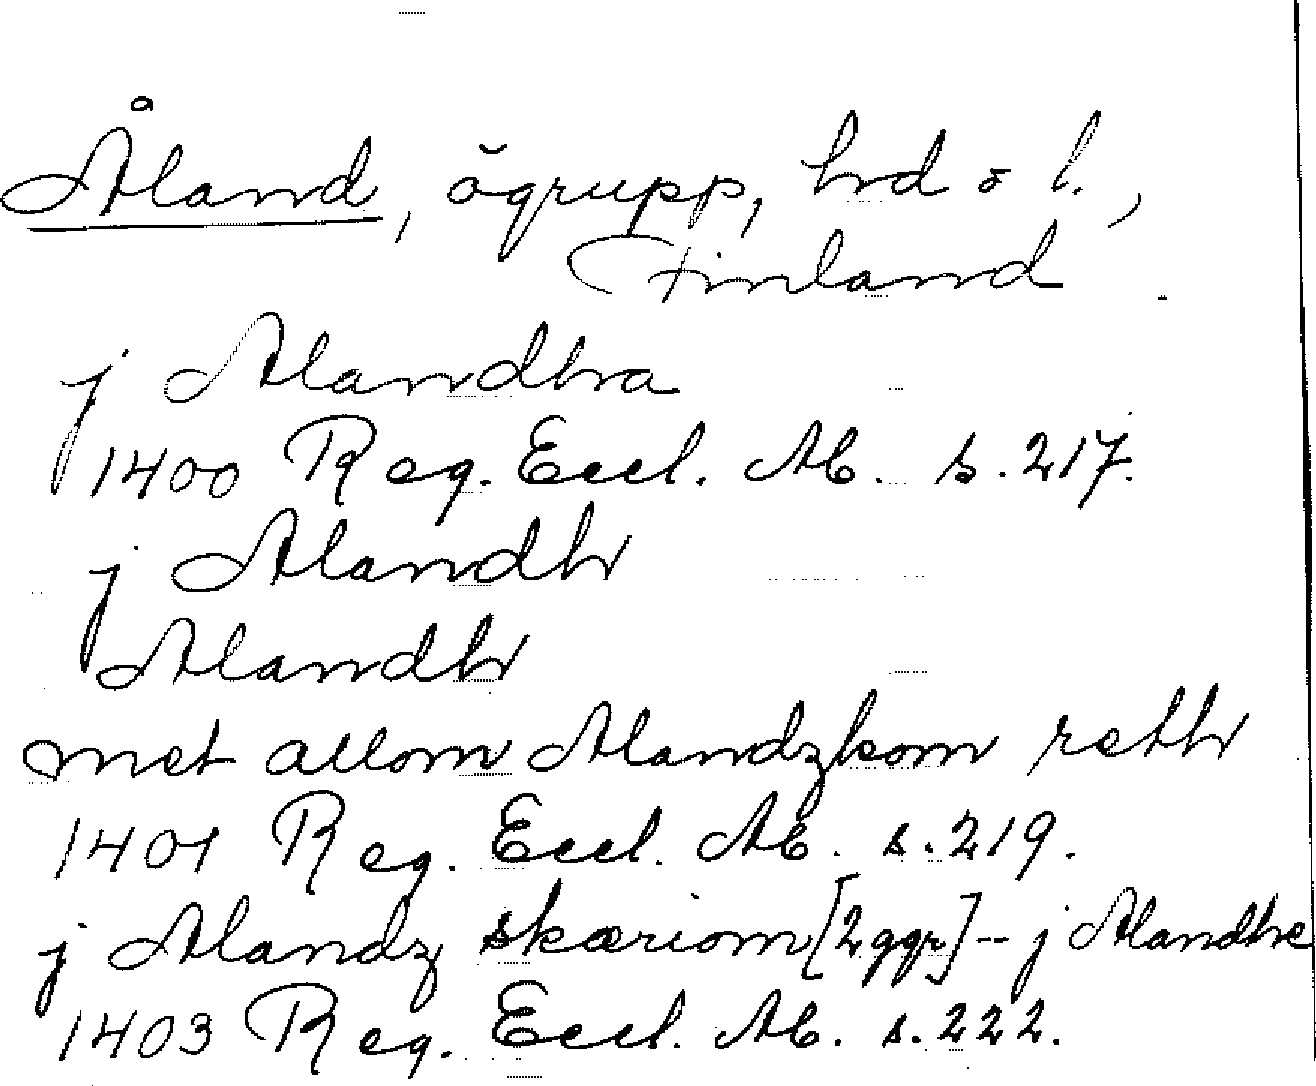 Åland, ögrupp, hd o l.,
Finland.
j Alandha
1400 Reg. Eccl. Ab. s. 217.
j Alandh
Alandh
met allom Alandzkom retth
1401 Reg. Eccl. Ab. s. 219.
j Alandz skæriom [2 ggr] -- j Alandhe
1403 Reg. Eccl. Ab. s. 222.